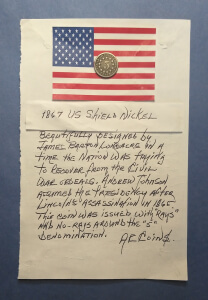 1867 US Shield Nickel
Beautifully designed by
James Barton Longacre in a
time the nation was trying
to recover from the Civil
War ordeals. Andrew Johnson
assumed the presidency after
Lincoln's assassination in 1865.
This coin was issued with "rays"
and no-rays around the "5"
denomination.
AC Coins